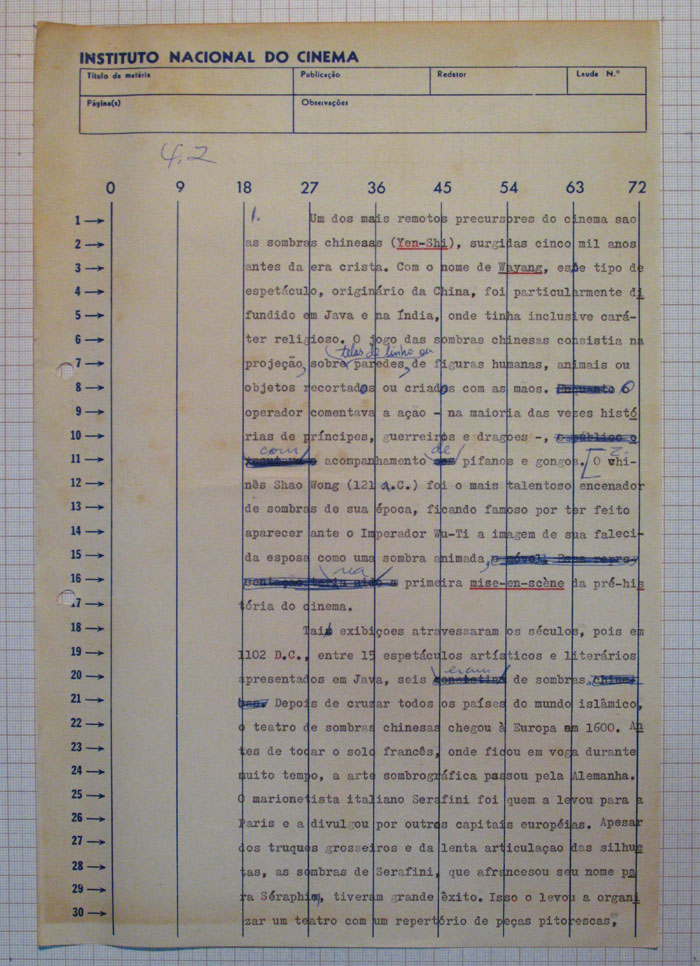 INSTITUTO NACIONAL DO CINEMA
Título da matéria Publicação Redator Lauda N.º
Página(s) Observações
4.2
0 9 18 27 36 45 54 63 72
1 → 1. Um dos mais remotos precursores do cinema sao
2 → as sombras chinesas (Yen-Shi), surgidas cinco mil anos
3 → antes da era crista. Com o nome de Wayang, esse tipo de
4 → espetáculo, originário da China, foi particularmente di
5 → fundido em Java e na Índia, onde tinha inclusive cará-
6 → ter religioso. O jogo das sombras chinesas consistia na
telas de linho ou
7 → projeção, sobre paredes, de figuras humanas, animais ou
8 → objetos recortados ou criados com as maos. Enquanto O
9 → operador comentava a ação - na maioria das vezes histó
10 → rias de príncipes, guerreiros e dragoes -, o público o
com de 2.
11 → acompanhamento pífanos e gongos. [O chi-
12 → nês Shao Wong (121 a.C.) foi o mais talentoso encenador
13 → de sombras de sua época, ficando famoso por ter feito
14 → aparecer ante o Imperador Wu-Ti a imagem de sua faleci-
15 → da esposa como uma sombra animada, e móvel. Essa repre-
na
16 → sentação teria sido a primeira mise-en-scène da pré-his
17 → tória do cinema.
18 → Tais exibiçoes atravessaram os séculos, pois em
19 → 1102 D.C., entre 15 espetáculos artísticos e literários
eram
20 → apresentados em Java, seis consistiam de sombras chine-
21 → sas. Depois de cruzar todos os países do mundo islâmico,
22 → o teatro de sombras chinesas chegou à Europa em 1600. An
23 → tes de tocar o solo francês, onde ficou em voga durante
24 → muito tempo, a arte sombrográfica passou pela Alemanha.
25 → O marionetista italiano Serafini foi quem a levou para a
26 → Paris e a divulgou por outras capitais européias. Apesar
27 → dos truques grosseiros e da lenta articulaçao das silhue
28 → tas, as sombras de Serafini, que afrancesou seu nome pa
29 → ra Séraphin, tiveram grande êxito. Isso o levou a organi
30 → zar um teatro com um repertório de peças pitorescas,